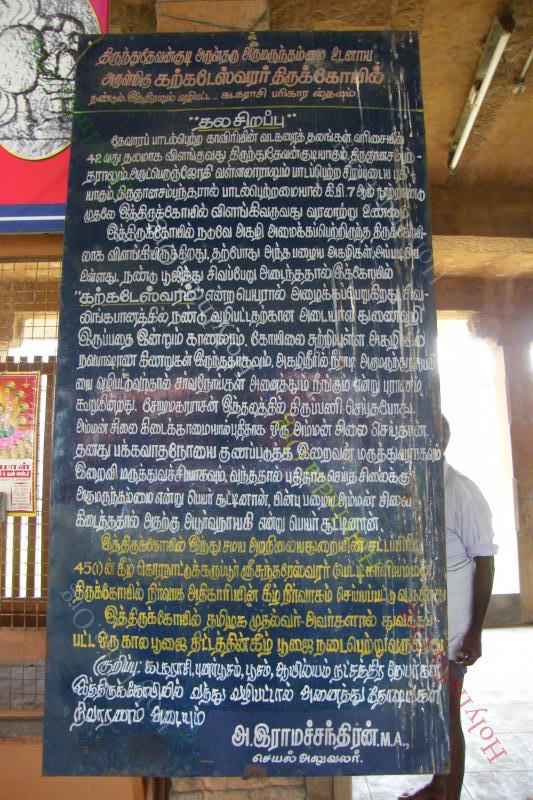 திருந்துதேவன்குடி அருள்தரு அருமருந்தம்மை உடனாய
அருள்மிகு கற்கடேஸ்வரர் திருக்கோயில்
நண்டும், இந்திரனும் வழிபட்ட - கடகராசி பரிகார ஸ்தலம்
"தலசிறப்பு"
தேவாரப் பாடல்பெற்ற காவிரியின் வடகரைத் தலங்கள் வரிசையில்
42 வது தலமாக விளங்குவது திருந்துதேவன்குடியாகும். திருஞானசம்பந்
தராலும், அருட்பெருஞ்ஜோதி வள்ளலாராலும் பாடப்பெற்ற சிறப்புடைய
யாகும், திருஞானசம்பந்தரால் பாடல்பெற்றமையால் கி.பி. 7 ஆம் நூற்றாண்டு
முதலே இத்திருக்கோயில் விளங்கிவருவது வரலாற்று உண்மை.
இத்திருக்கோயில் நடுவே அகழி அமைக்கப்பெற்றிருந்த திருக்கோயி
லாக விளங்கியிருக்கிறது, தற்போது அந்த பழைய அகழிகள் அப்படியே
உள்ளது. நண்டு பூஜித்து சிவப்பேறு அடைந்ததால் இக்கோயில்
"கற்கடேஸ்வரம்" என்ற பெயரால் அழைக்கப்பெறுகிறது. சிவ
லிங்கபாணத்தில் நண்டு வழிபட்டதற்கான அடையாள துளைவழி
இருப்பதை இன்றும் காணலாம். கோயிலை சுற்றியுள்ள அகழியில்
நவபாஷாண கிணறுகள் இருந்ததாகவும், அகழிநீரில் நீராடி அருமருந்தம்மை
யை வழிபட்டுவந்தால் சாவநோய்கள் அனைத்தும் நீங்கும் என்று புராணம்
கூறுகின்றது. சோழமகாராசன் இத்தலத்தில் திருப்பணி செய்தபோது
அம்மன் சிலை கிடைக்காமையால் புதிதாக ஒரு அம்மன் சிலை செய்தான்.
தனது பக்கவாதநோயை குணப்படுத்த இறைவன் மருத்துவராகவும்
இறைவி மருத்துவச்சியாகவும், வந்ததால் புதிதாக செய்த சிலைக்கு
அருமருந்தம்மை என்று பெயர் சூட்டினான், பின்பு பழைய அம்மன் சிலை
கிடைத்ததால் அதற்கு அபூர்வநாயகி என்று பெயர் சூட்டினான்.
இத்திருக்கோயில் இந்து சமய அறநிலையத்துறையின் சட்டப்பிரிவு
45(1)ன் கீழ் கொரநாட்டுக்கருப்பூர் ஸ்ரீ சுந்தரேஸ்வரர்
திருக்கோயில் நிர்வாக அதிகாரியின் கீழ் நிர்வாகம் செய்யப்பட்டு வருகிறது
இத்திருக்கோயில் தமிழக முதல்வர் அவர்களால் துவக்கப்
பட்ட ஒரு கால பூஜை திட்டத்தின் கீழ் பூஜை நடைபெற்று வருகிறது
குறிப்பு: கடகராசி, புனர்பூசம், பூசம், ஆயில்யம் நட்சத்திர நேயர்கள்
இத்திருக்கோயிலில் வந்து வழிபட்டால் அனைத்து தோஷங்கள்
நிவாரணம் அடையும்
அ.இராமச்சந்திரன்.M.A.,
செயல் அலுவலர்.